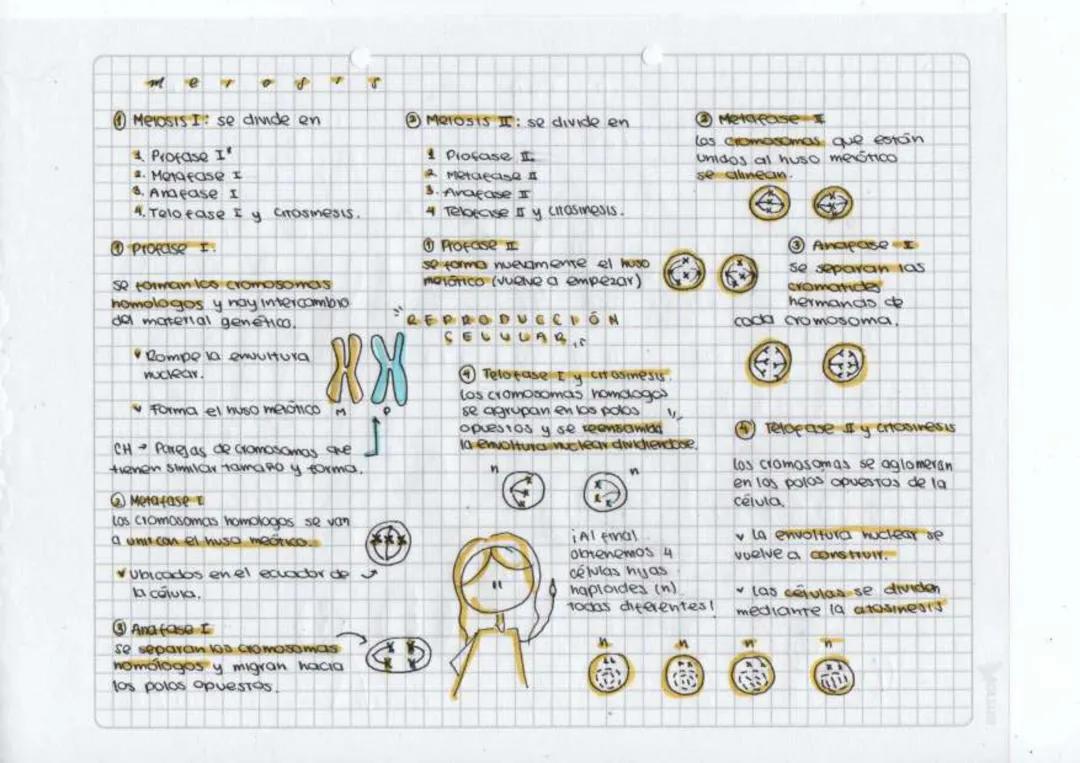 meiosis
① Meiosis I: se divide en
1. Profase I*
2. Metafase I
3. Anafase I
4. Telofase I y citosinesis.
① Profase I.
se forman los cromosomas
homologos y hay intercambio
del material genético.
Rompe la envultura
nuclear.
Forma el huso meiótico
M P
CH → Parejas de cromosomas que
tienen similar tamaño y forma.
② Metafase I
Los cromosomas homologos se van
a unir con el huso meótico.
Ubicados en el ecuador de
la célula.
③ Anafase I
se separan los cromosomas
homólogos y migran hacia
los polos opuestos.
② Meiosis II: se divide en
1 Profase II
2. Metafase II
3. Anafase II
4 Telofase II y citosinesis.
① Profase II
se forma nuevamente el huso
meiótico (vuelve a empezar)
REPRODUCCIÓN
CELULAR
④ Telofase I y citosinesis.
Los cromosomas homologos
se agrupan en los polos
opuestos y se reensambla
la envoltura nuclear dividiendose.
n n
¡Al final
obtenemos 4
células hijas
haploides (n)
todas diferentes!
② Metafase II
Los cromosomas que están
unidos al huso meiótico
se alinean.
③ Anafase II
se separan las
cromatides
hermanas de
cada cromosoma.
④ Telofase II y citosinesis
Los cromosomas se aglomeran
en los polos opuestos de la
célula.
La envoltura nuclear se
vuelve a construir.
Las células se dividen
mediante la citosinesis
n n n n